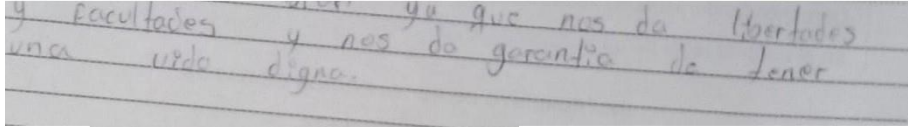 ya que nos da libertades
y facultades y nos da garantía de tener
una vida digna.